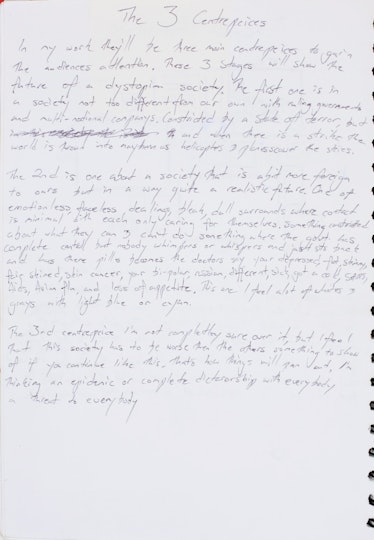 The 3 Centrepeices
In my work they'll be three main centrepeices to gain
the audiences attention. These 3 stages will show the
future of a dystopian society. The first one is in
a society not too different from our own with ruling governments
and multi-national companys. Constricted by a state of terror, but
and when there is a strike the
world is thrown into mayhem as helicopters & planes cover the skies.
The 2nd is one about a society that is a bit more foreign
to ours but in a way quite a realistic future. One of
emotionless, faceless dealings, bleak, dull surrounds where contact
is minimal with each only caring for themselves, something
about what they can & cant do something where the govt has
complete control but nobody whimpers or whispers and
and has there pills the doctors say your depressed, fat, skinny,
fair skined, skin cancer, your bi-polar, asian, different, sick, got a cold,
aids, Asian flu, and loss of appetite. This one I feel alot of whites &
greys with light blue or cyan.
The 3rd centrepeice I'm not completley sure over it, but I feel
that this society has to be worse then the others something to show
of if you continue like this, thats how things will pan out, I'm
thinking an epidemic or complete dictatorship with everybody
a threat to everybody